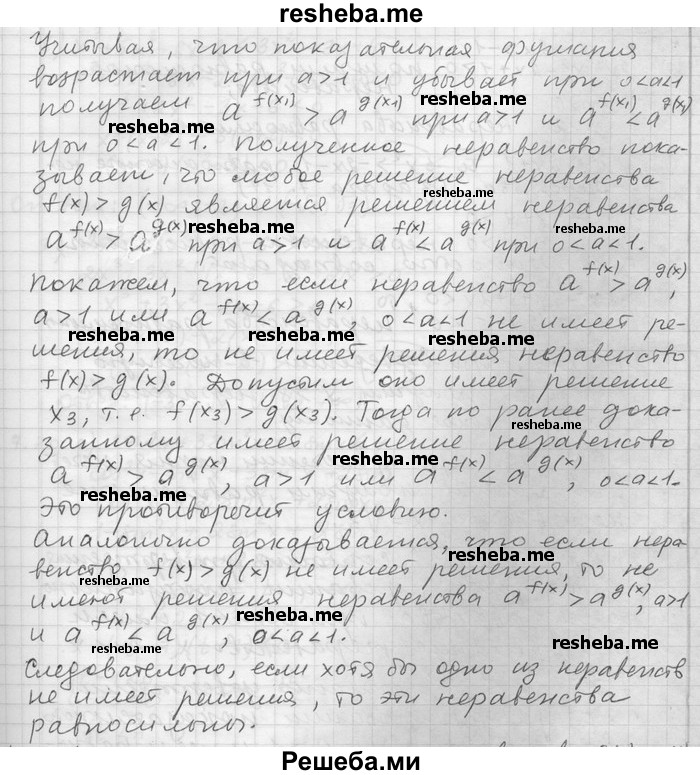 resheba.me
Учитывая, что показательная функция
возрастает при a>1 и убывает при 0<a<1
получаем a^f(x₁) > a^g(x₁) при a>1 и a^f(x₁) < a^g(x₁)
resheba.me resheba.me
при 0<a<1. Полученное неравенство пока-
зывает, что любое решение неравенства
resheba.me
f(x) > g(x) является решением неравенства
resheba.me resheba.me
a^f(x) > a^g(x) при a>1 и a^f(x) < a^g(x) при 0<a<1.
Покажем, что если неравенство a^f(x) > a^g(x),
a>1 или a^f(x) < a^g(x), 0<a<1 не имеет ре-
resheba.me resheba.me resheba.me
шения, то не имеет решения неравенство
f(x) > g(x). Допустим оно имеет решение
x₃, т.е. f(x₃) > g(x₃). Тогда по ранее дока-
resheba.me
занному имеет решение неравенство
resheba.me
a^f(x) > a^g(x), a>1 или a^f(x) < a^g(x), 0<a<1.
resheba.me
Это противоречит условию.
Аналогично доказывается, что если нера-
resheba.me
венство f(x) > g(x) не имеет решения, то не
resheba.me
имеют решения неравенства a^f(x) > a^g(x), a>1
resheba.me
и a^f(x) < a^g(x), 0<a<1.
resheba.me resheba.me
Следовательно, если хотя бы одно из неравенств
не имеет решения, то эти неравенства
равносильны.
Решеба.ми